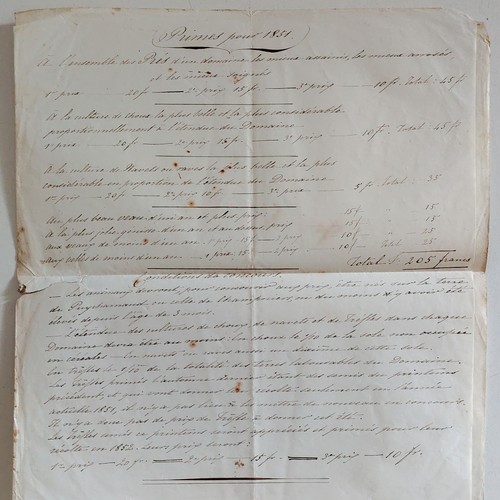 Primes pour 1851.
A l'ensemble des Prés d'un domaine les mieux assainis, les mieux arrosés
et les mieux soignés
1er prix — 20 fr — 2e prix 15 fr. — 3e prix — 10 fr. Total - 45 fr
A la culture de choux la plus belle et la plus considérable
proportionnellement à l'étendue du Domaine
1er prix. — 20 fr — 2e prix 15 fr. — 3e prix — 10 fr. Total - 45 fr
A la culture de Navets ou raves la plus belle et la plus
considérable en proportion de l'étendue du Domaine
1er prix — 20 fr — 2e prix 10 fr — 3e prix — 5 fr. Total - 35
Au plus beau veau d'un an et plus, prix 15 fr - 15
A la plus jolie génisse d'un an et au dessus, prix 15 fr - 15
aux veaux de moins d'un an 1er prix 15 fr — 2e prix 10 fr - Total 25
aux velles de moins d'un an — 1er prix 15 — 2e prix 10 fr Total 25
Total F. 205 francs
Conditions du concours
— Les animaux devront, pour concourir aux prix, être nés sur la terre
de Puycharnaud, ou celle de Champniers, ou du moins y avoir été
élevés depuis l'âge de 3 mois.
L'étendue des cultures de choux de navets et de Trèfles dans chaque
Domaine devra être au moins: En choux le 1/20 de la sole non occupée
en céréales — En navets ou raves aussi un dixième de cette sole.
En Trèfles le 1/10 de la totalité des terres labourables du Domaine.
Les Trèfles primés l'automne dernier étant des semis du printemps
précédent, et qui vont donner leur récolte seulement en l'année
actuelle 1851, il n'y a pas lieu à les mettre de nouveau en concours.
Il n'y a donc pas de prix de Trèfle à donner cet été.
Les Trèfles semés ce printemps seront appréciés et primés pour leur
récolte en 1852. Leurs prix seront:
1er prix — 20 fr. — 2e prix — 15 fr. — 3e prix — 10 fr.